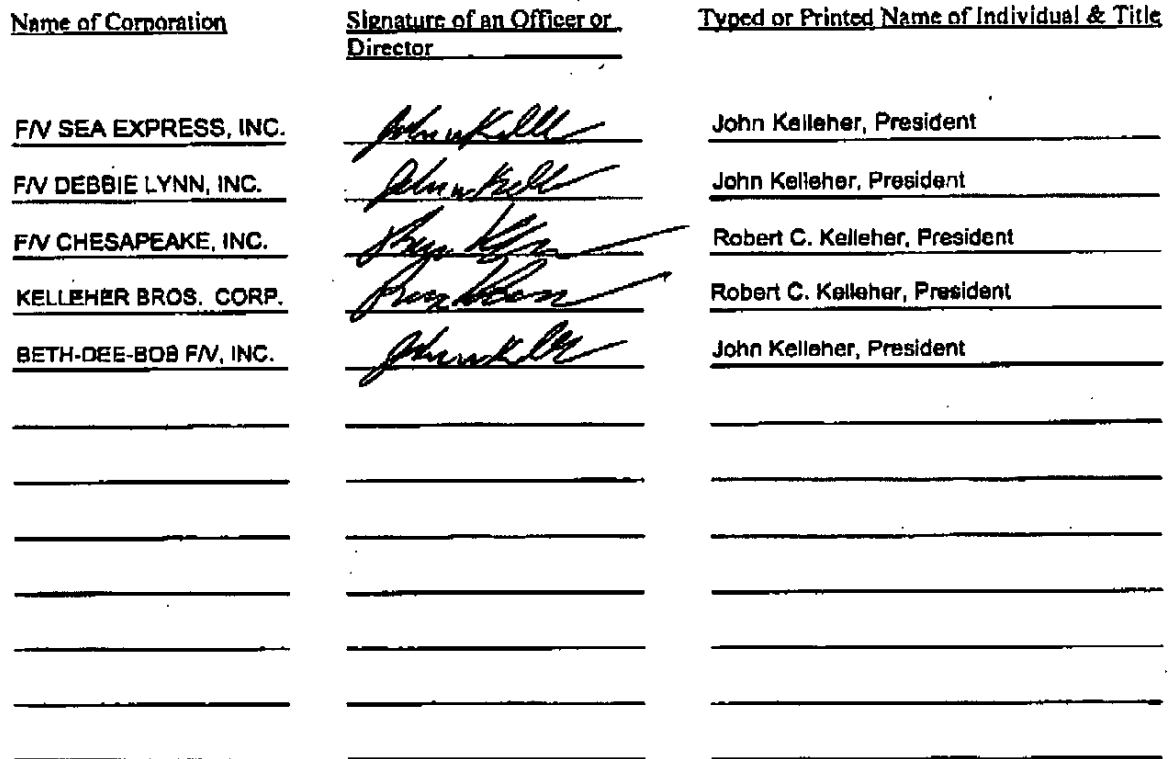 Name of Corporation Signature of an Officer or Director Typed or Printed Name of Individual & Title
F/V SEA EXPRESS, INC. John Kelleher, President
F/V DEBBIE LYNN, INC. John Kelleher, President
F/V CHESAPEAKE, INC. Robert C. Kelleher, President
KELLEHER BROS. CORP. Robert C. Kelleher, President
BETH-DEE-BOB F/V, INC. John Kelleher, President